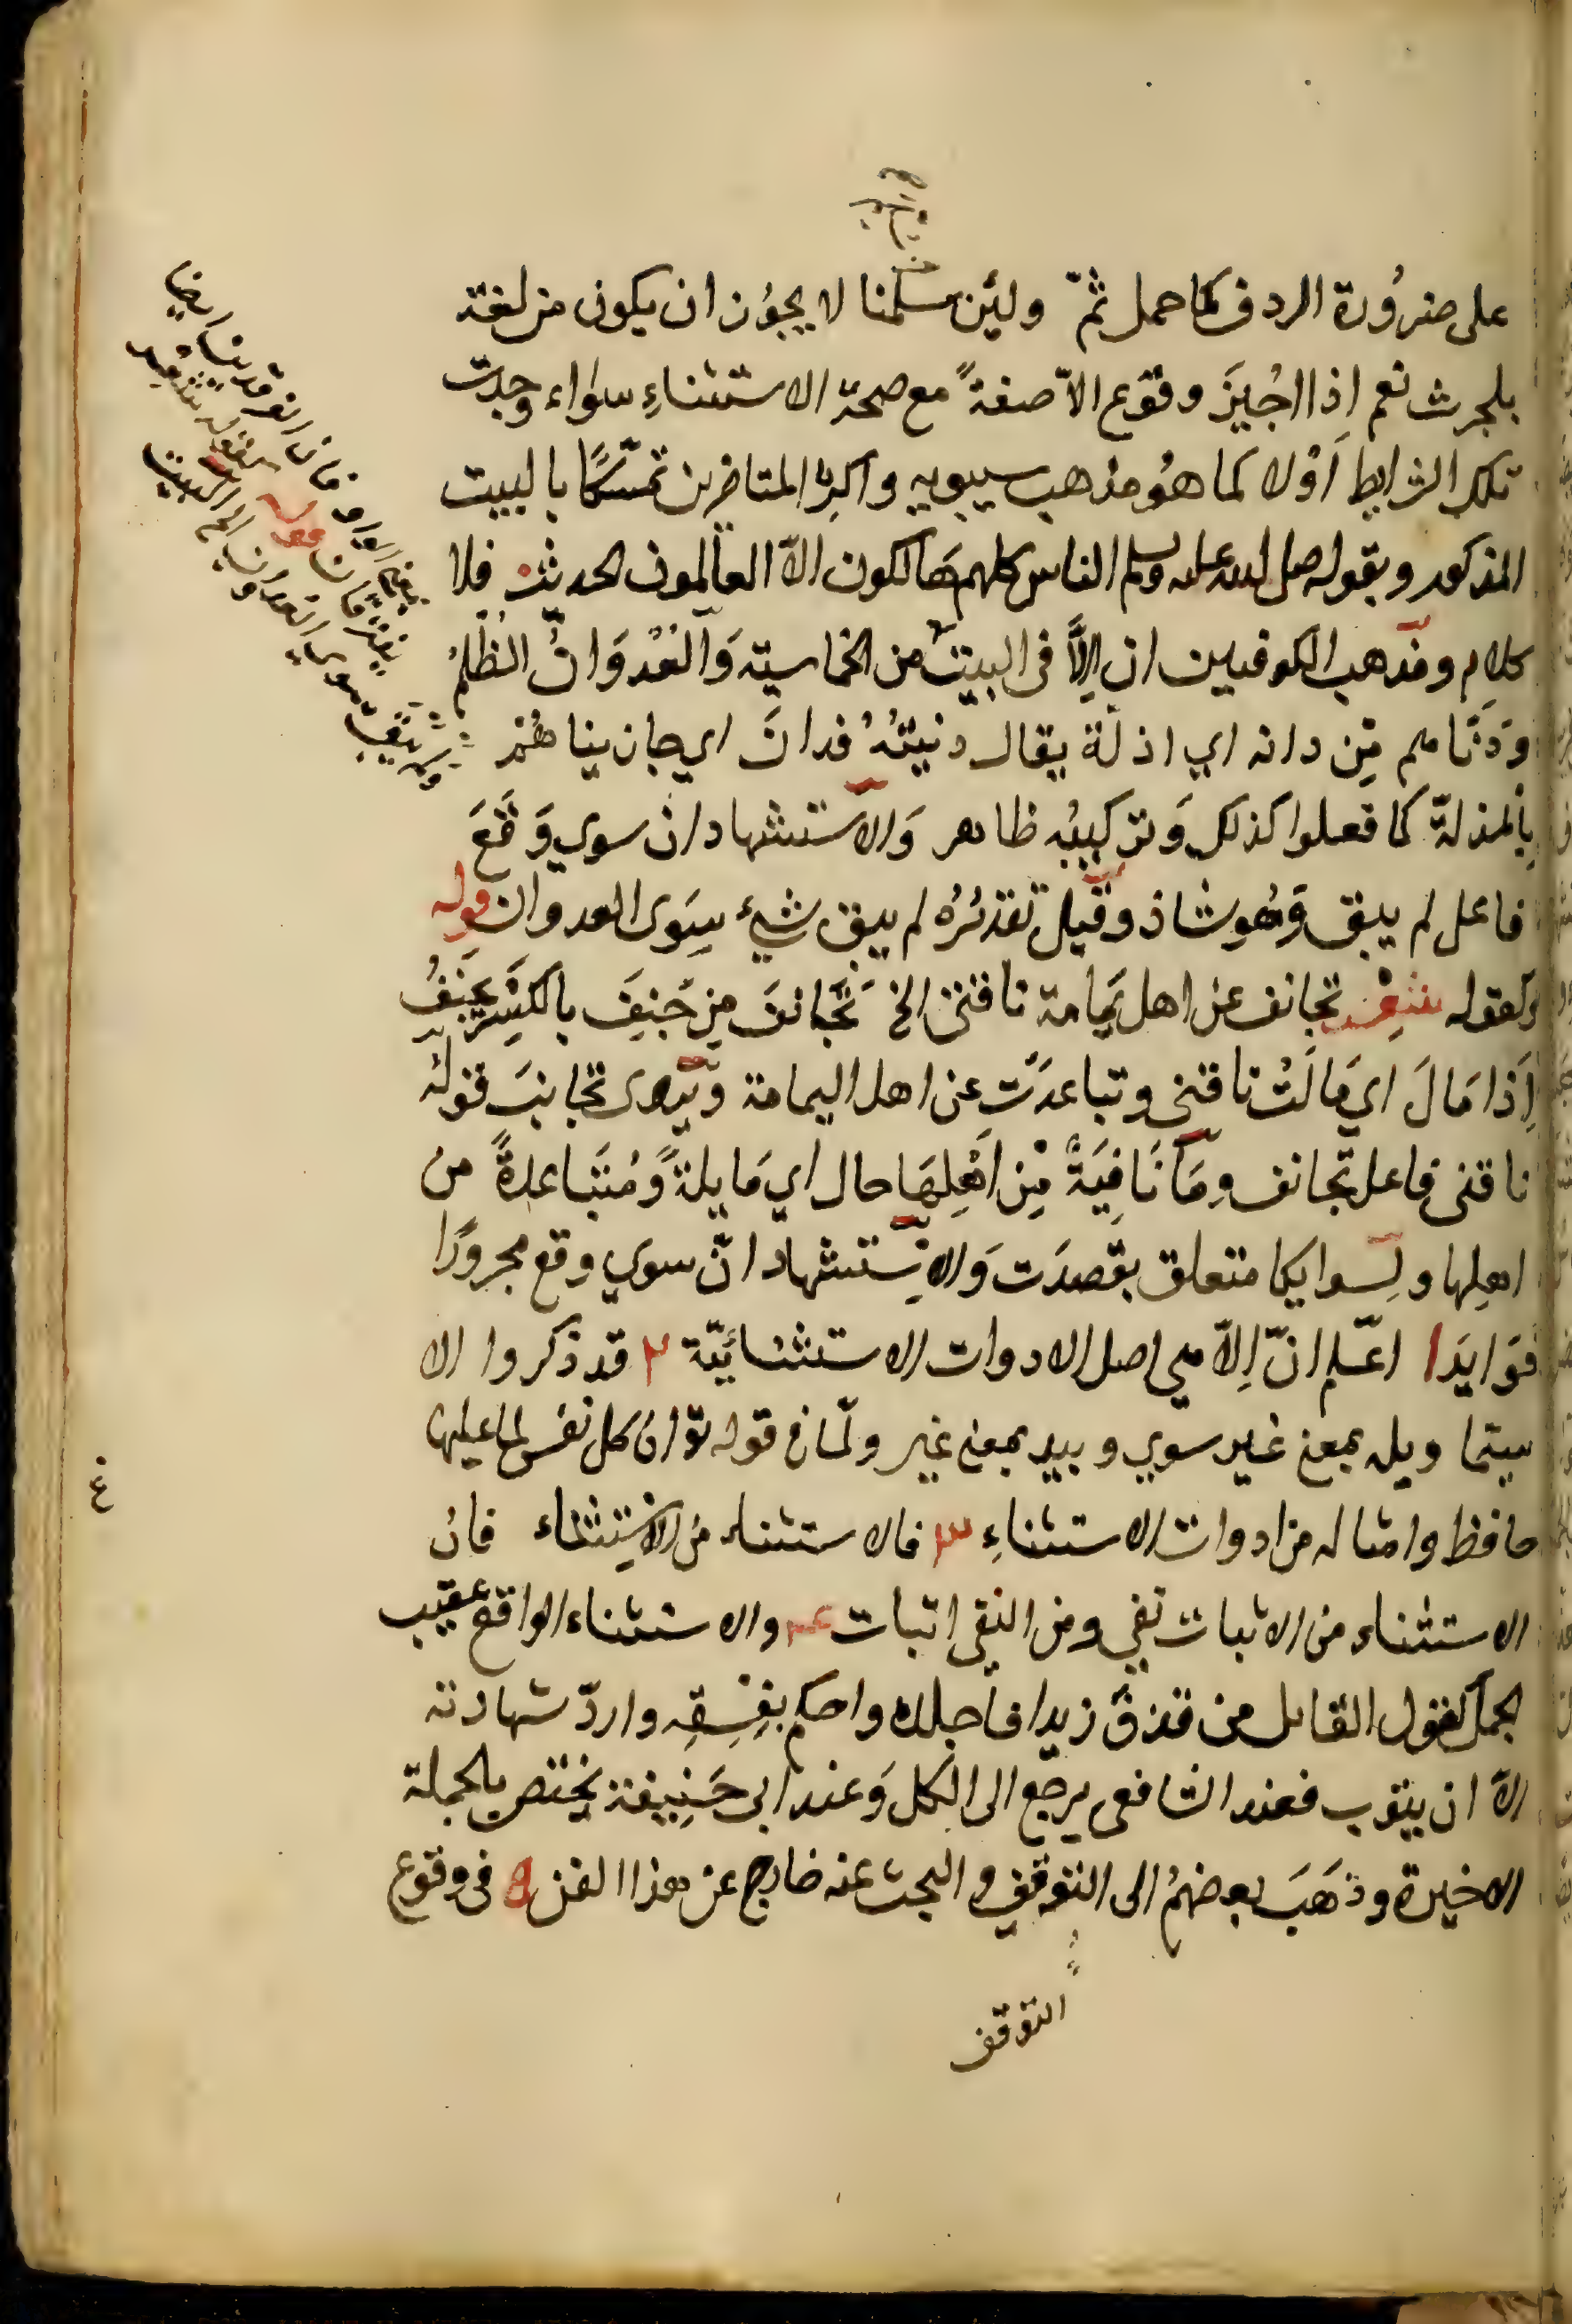 على ضرُورة الردف كما حمل ثمّ ولئن سلمنا لا يجوُز ان يكون من لغة
بلحرث نعم اذا اجُيزَ وقوع الاّ صفةً مع صحة الاستثناءِ سوَاء وجدت
تلك الشرايط اَوْلا كما هوُ مذهب سيبويه واكثر المتاخرين تمسّكًا بالبيت
المذكور وبقوله صلى الله عليه وسلم الناس كلهم هَالكون الاّ العالمون الحديث فلا
كلام ومذهب الكوفيين ان اِلاَّ فى البيت من الخماسية وَالعُدوَانُ الظلمُ
وَدَنَّاهم مِن دانه اي اذلة يقال دنيتهُ فدانَ اي جازيناهُمْ
بالمذلةّ كما فعلوا كذلك وَتركيبُه ظاهر وَالاستشهاد ان سوي وَقعَ
فاعل لم يبق وَهُو شاذ وقيل تقديرُهُ لم يبق شيء سِوَى العدوان قوله
وكقوله شعر تجانف عن اهل يمامة ناقتى الخ تجَانفَ مِن جَنِفَ بالكسْر يجنَفُ
اِذا مَالَ اي مَالَتْ ناقتى وتباعدَتِ عن اهل اليمامة ويروى تجانبَ قوله
ناقتى فاعل تجانف ومَا نَافِيَةٌ مِن اَهْلِهَا حال اي مَايلةً وُمُتَباعدةً من
اهلِها ولِسوايكا متعلق بقصدَت وَالاِستشهاد انّ سوي وقع مجرورًا
فوَايدَ ١ اعلم انّ اِلاّ هي اصل الادوات الاستثنائيّة ٢ قد ذكروا الا
سيما وبله بمعنى غير سوي وبيد بمعنى غير ولمّا فى قوله تعَ ان كل نفس لما عليها
حافظ وامثاله من ادوات الاستثناءِ ٣ فالاستثناء من الاِستِثناء فان
الاستثناء من الاثبات نفي ومن النفى اثبات ٤ والاستثناء الواقع عقيب
الجمل كقول القائل من قذفَ زيدا فاَجلده واحكم بفِسِقِه واردّ شهادته
الاّ ان يتوب فعند الشافعى يرجع الى الكل وَعند ابى حَنِيفة يختص بالجملة
الاخيرة وذهَبَ بعضهمُ الى التوقف والبحث عنه خارج عن هذا الفن ٥ فى وقوع
التوقف